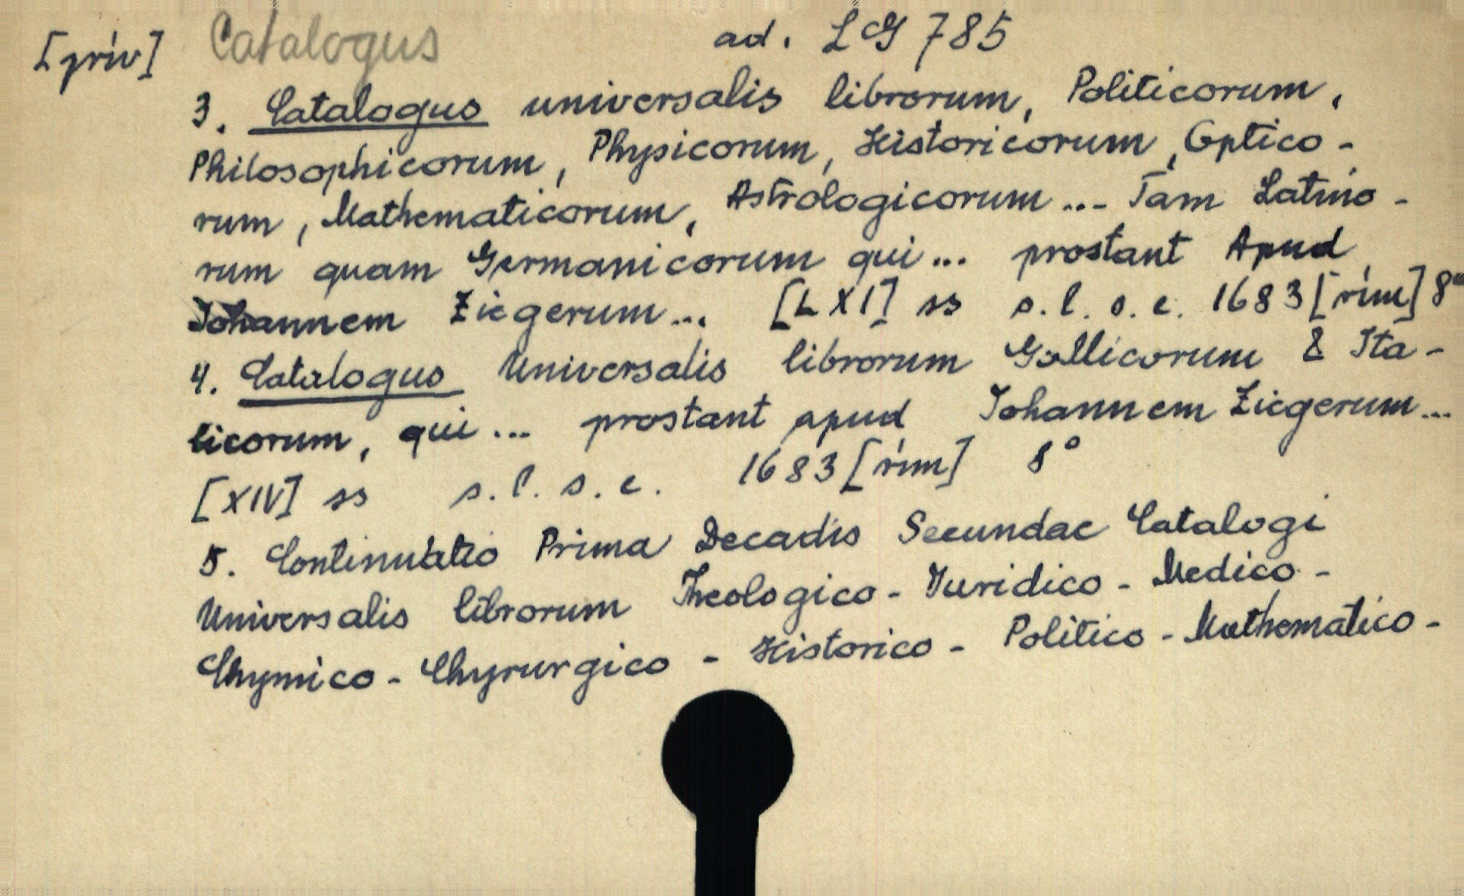 [priv] Catalogus ad. LG 785
3. Catalogus universalis librorum, Politicorum,
Philosophicorum, Physicorum, Historicorum, Optico-
rum, Mathematicorum, Astrologicorum... Tam Latino-
rum quam Germanicorum qui... prostant Apud
Johannem Ziegerum... [LXI] ss s.l.s.e. 1683 [rím] 8°
4. Catalogus Universalis librorum Gallicorum & Ita-
licorum, qui... prostant apud Johannem Ziegerum...
[XIV] ss s.l.s.e. 1683 [rím] 8°
5. Continuatio Prima Decadis Secundae Catalogi
Universalis librorum Theologico-Juridico-Medico-
Chymico-Chyrurgico-Historico-Politico-Mathematico-